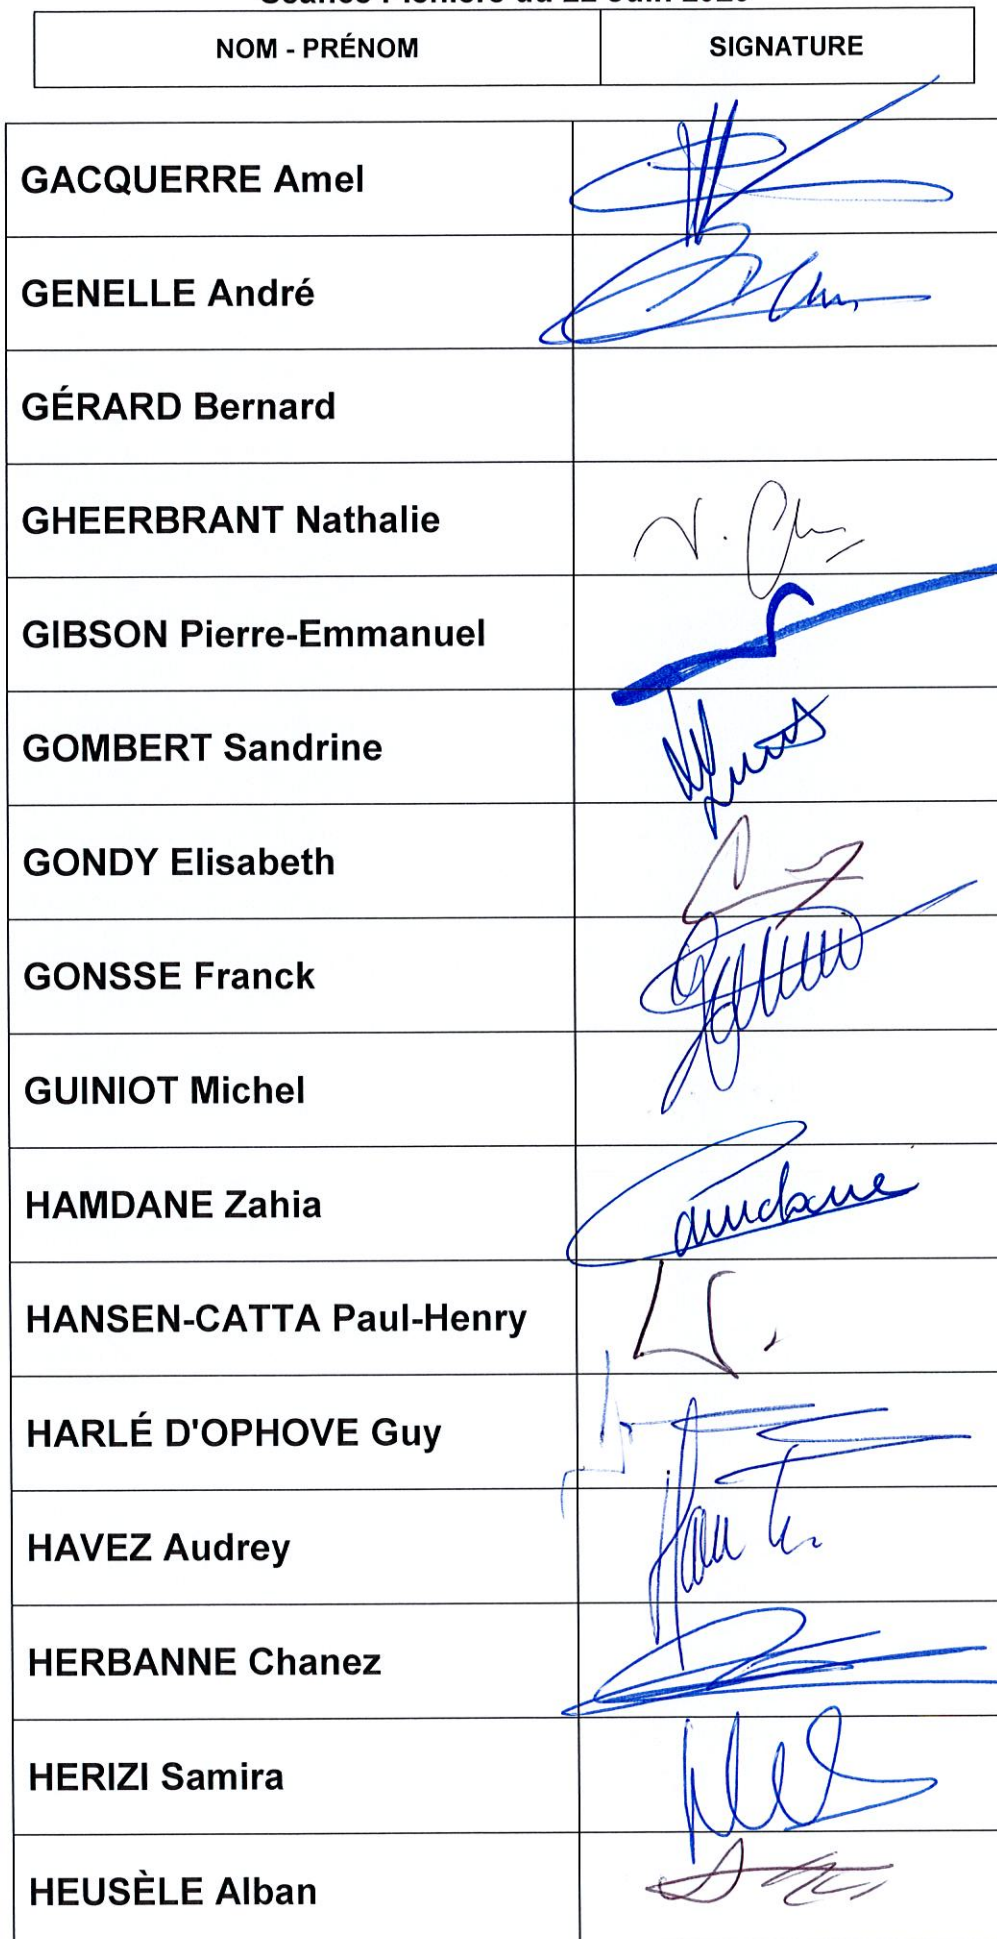 NOM - PRÉNOM SIGNATURE
GACQUERRE Amel
GENELLE André
GÉRARD Bernard
GHEERBRANT Nathalie
GIBSON Pierre-Emmanuel
GOMBERT Sandrine
GONDY Elisabeth
GONSSE Franck
GUINIOT Michel
HAMDANE Zahia
HANSEN-CATTA Paul-Henry
HARLÉ D'OPHOVE Guy
HAVEZ Audrey
HERBANNE Chanez
HERIZI Samira
HEUSÈLE Alban